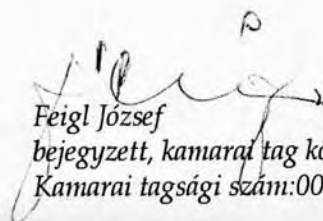 Feigl József
bejegyzett, kamarai tag kö
Kamarai tagsági szám:00